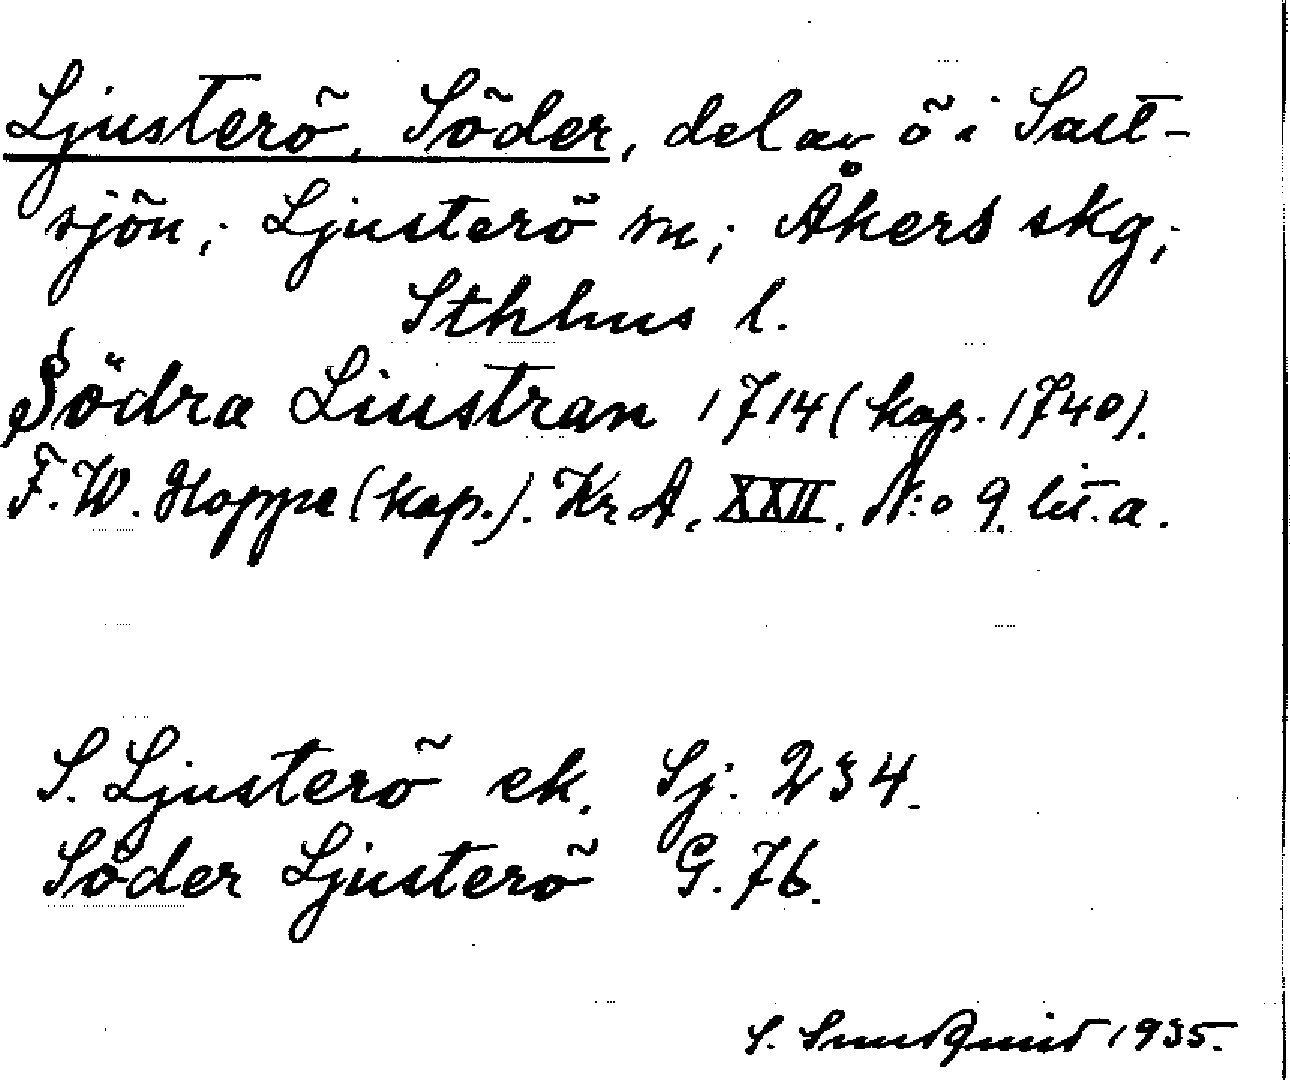 Ljusterö, Söder, del av ö i Salt-
sjön; Ljusterö sn; Åkers skg;
Sthlms l.
Södra Liustran 1714 (kop. 1740).
F. W. Hoppe (kop.). Kr A. XXII. N:o 9. lit. a.
S. Ljusterö ek. Sj. 234.
Söder Ljusterö G. 76.
S. Sundquist 1935.